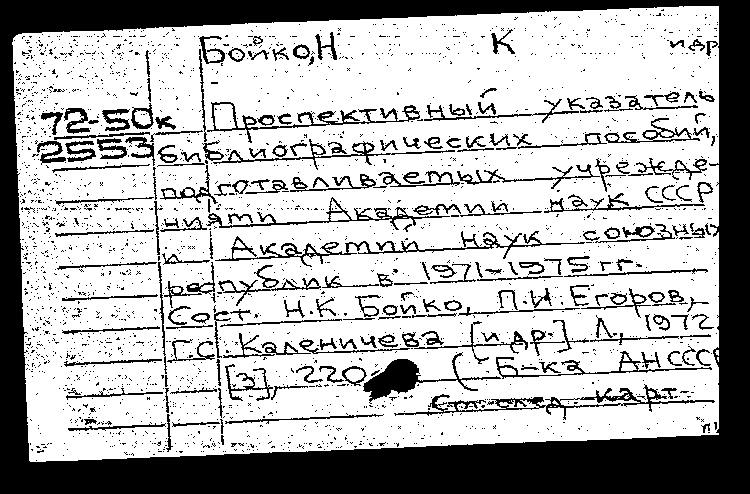 Бойко, Н К и др
72-50к Проспективный указатель
2553 библиографических пособий,
подготавливаемых учрежде-
ниями Академии наук СССР
и Академий наук союзных
республик в 1971-1975 гг.
Сост. Н.К. Бойко, П.И. Егоров,
Г.С. Каленичева [и др.] Л., 1972.
[3], 220 (Б-ка АН СССР
См. след. карт.